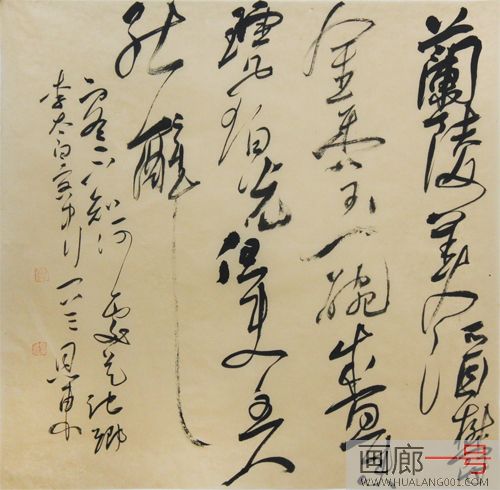 蘭陵美酒鬱
金香玉碗盛來
琥珀光但使主人
能醉
客不知何處是他鄉
李太白客中行
画廊一号
WWW.HUALANG001.COM